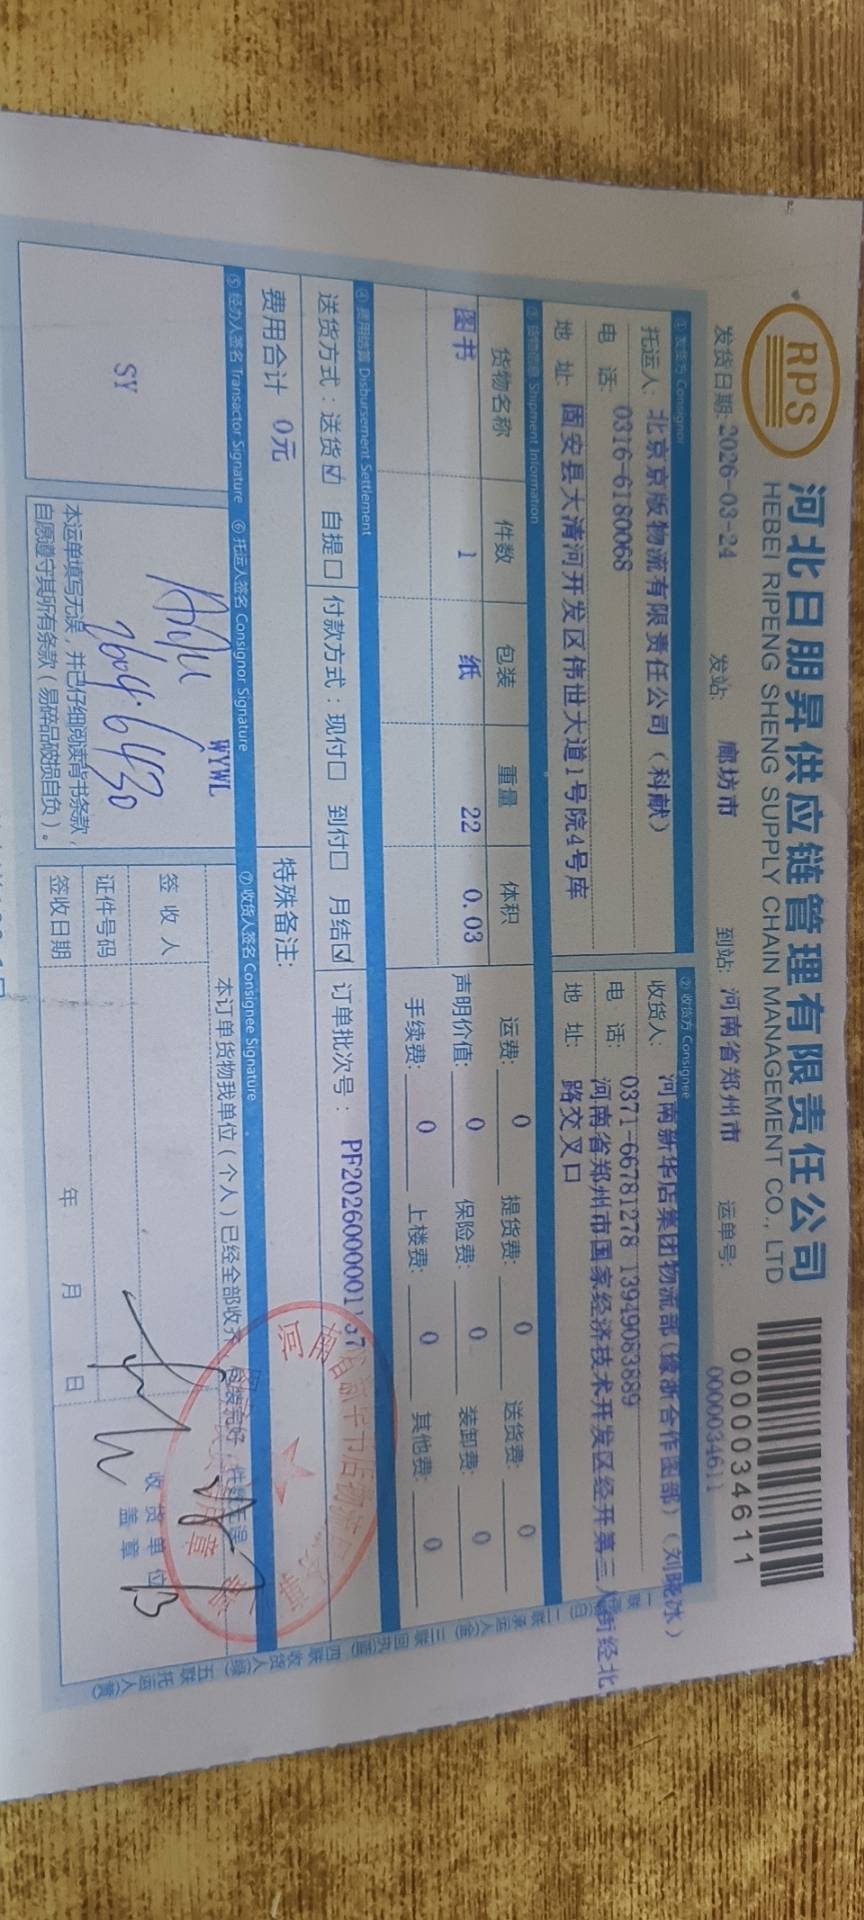 RPS
河北日朋昇供应链管理有限责任公司
HEBEI RIPENG SHENG SUPPLY CHAIN MANAGEMENT CO., LTD
0000034611
发货日期: 2026-03-24 发站: 廊坊市 到站: 河南省郑州市 运单号: 0000034611
① 发货方 Consignor ② 收货方 Consignee
托运人: 北京京版物流有限责任公司（科献） 收货人: 河南新华店集团物流部（豫浙合作图部）（刘晓冰）
电 话: 0316-6180068 电 话: 0371-66781278 13949083889
地 址: 固安县大清河开发区伟世大道1号院4号库 地 址: 河南省郑州市国家经济技术开发区经开第三大街经北
路交叉口
③ 货物信息 Shipment Information
货物名称 件数 包装 重量 体积 运费: 0 提货费: 0 送货费: 0
图书 1 纸 22 0.03 声明价值: 0 保险费: 0 装卸费: 0
手续费: 0 上楼费: 0 其他费: 0
④ 费用结算 Disbursement Settlement
送货方式：送货☑ 自提☐ 付款方式：现付☐ 到付☐ 月结☑ 订单批次号：
费用合计 0元 特殊备注:
⑤ 经办人签名 Transactor Signature ⑥ 托运人签名 Consignor Signature ⑦ 收货人签名 Consignee Signature
SY
WYWL
本运单填写无误，并已仔细阅读背书条款，
自愿遵守其所有条款（易碎品破损自负）。
本订单货物我单位（个人）已经全部收齐
签 收 人
证件号码
签收日期 年 月 日
收货单位
盖章